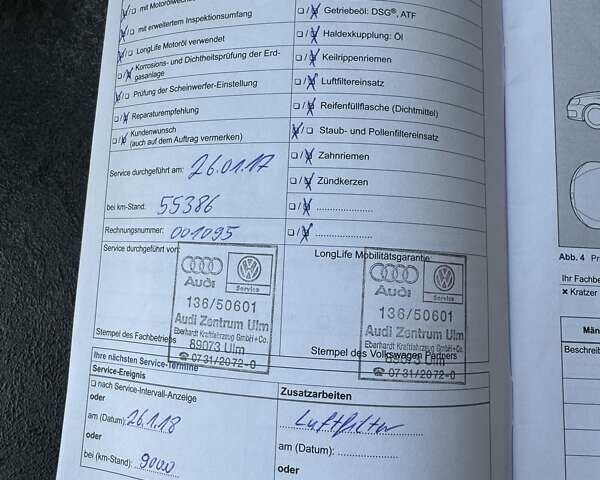 mit Motorölwechsel
❏/❏ mit erweitertem Inspektionsumfang
❏/❏ LongLife Motoröl verwendet
❏/❏ Korrosions- und Dichtheitsprüfung der Erd-
gasanlage
❏/❏ Prüfung der Scheinwerfer-Einstellung
❏/❏ Reparaturempfehlung
❏/❏ Kundenwunsch
(auch auf dem Auftrag vermerken)
Service durchgeführt am: 26.01.17
bei km-Stand: 55386
Rechnungsnummer: 001095
❏/❏ Getriebeöl: DSG®, ATF
❏/❏ Haldexkupplung: Öl
❏/❏ Keilrippenriemen
❏/❏ Luftfiltereinsatz
❏/❏ Reifenfüllflasche (Dichtmittel)
❏/❏ Staub- und Pollenfiltereinsatz
❏/❏ Zahnriemen
❏/❏ Zündkerzen
❏/❏ ......................
❏/❏ ......................
Service durchgeführt von:
Audi
Service
136/50601
Audi Zentrum Ulm
Eberhardt Kraftfahrzeug GmbH+Co.
89073 Ulm
☎ 0731/2072-0
Stempel des Fachbetriebs
LongLife Mobilitätsgarantie:
Audi
Service
136/50601
Audi Zentrum Ulm
Eberhardt Kraftfahrzeug GmbH+Co.
89073 Ulm
☎ 0731/2072-0
Stempel des Volkswagen Partners
Ihre nächsten Service-Termine
Service-Ereignis
❏ nach Service-Intervall-Anzeige
oder
am (Datum): 26.1.18
oder
bei (km-Stand): 9000
Zusatzarbeiten
Luftfilter
am (Datum):................
oder
Abb. 4
Ihr Fachbe
× Kratzer
Män
Beschreib